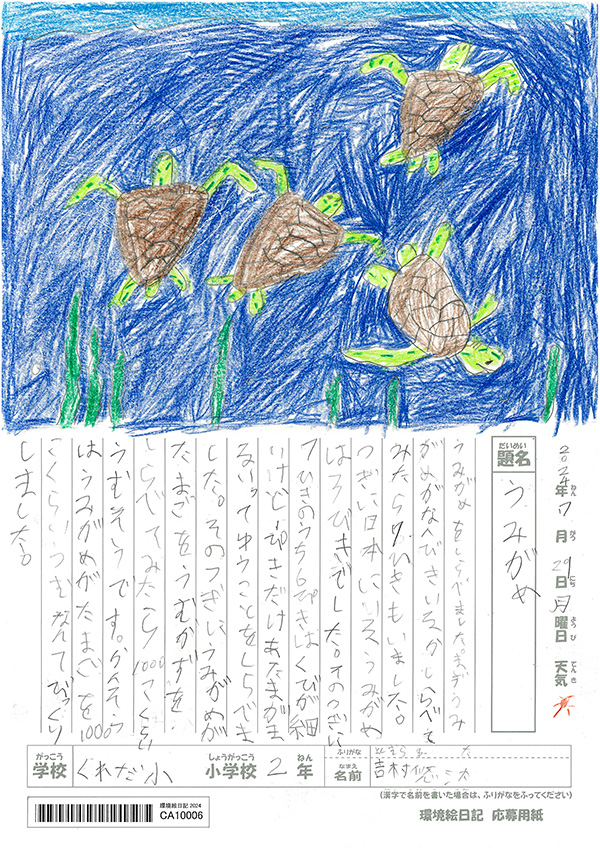 2024年7月29日月曜日 天気
ねん がつ にち ようび てんき
だいめい
題名
うみがめ
うみがめをしらべました。まずうみ
がめがなんびきいるかしらべて
みたら7ひきもいました。
つぎに日本にいるうみがめ
は5ひきでした。そのつぎに
7ひきのうち6ぴきはくびが細
いけど1ぴきだけあたまがま
るいってゆうことをしらべま
した。そのつぎにうみがめが
たまごをうむかずを
しらべてみたら1000こくらい
うむそうです。かんそう
はうみがめがたまごを1000
こくらいうむなんてびっくり
しました。
がっこう
学校
くれだ小
しょうがっこう
小学校
2
ねん
年
ふりがな
なまえ
名前
吉村
(漢字で名前を書いた場合は、ふりがなをふってください)
環境絵日記 2024
CA10006
環境絵日記 応募用紙